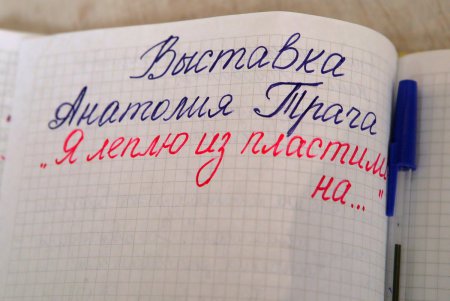 Выставка
Анатолия Трача
„Я леплю из пластили
на..."